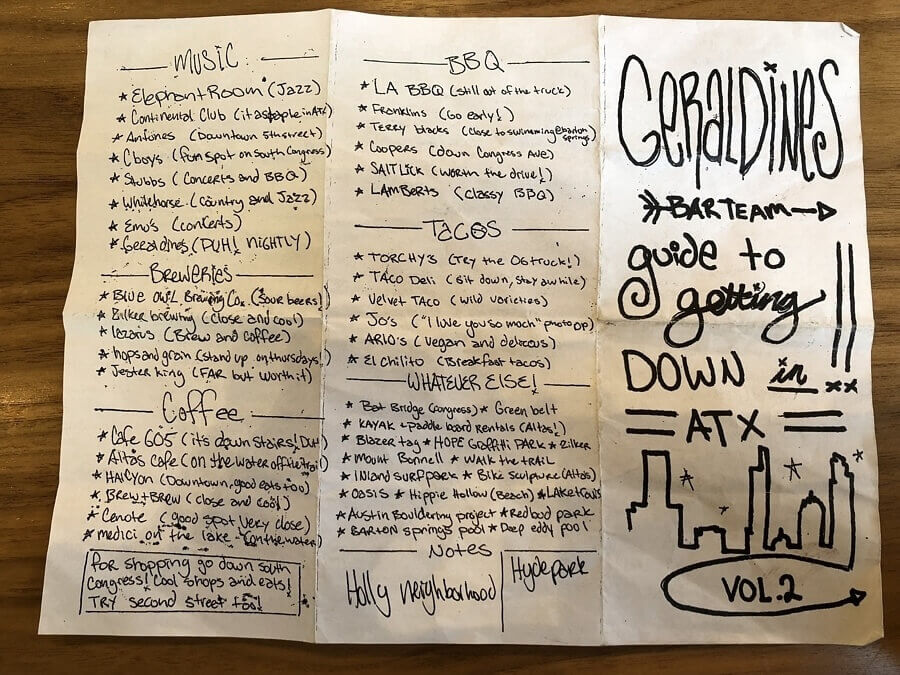 MUSIC
* Elephant Room (Jazz)
* Continental Club (it a staple in ATX)
* Antones (Downtown 5th street)
* C boys (fun spot on south Congress)
* Stubbs (Concerts and BBQ)
* Whitehorse (Country and Jazz)
* Emo's (concerts)
* Geraldines (DUH! NIGHTLY)
Breweries
* Blue owl Brewing Co. (Sour beers!)
* Zilker brewing (Close and cool)
* Lazarus (Brew and coffee)
* hops and grain (stand up on thursdays!)
* Jester King (FAR but worth it)
Coffee
* Cafe 605 (it's down stairs! DUH)
* Altas cafe (on the water off the trail)
* HALCYON (Downtown, good eats too)
* Brew + Brew (close and cool)
* Cenote (good spot, very close)
* medici on the lake (on the water)
For shopping go down south
Congress! Cool shops and eats!
TRY second street too!
BBQ
* LA BBQ (still out of the truck)
* Franklins (Go early!)
* Terry blacks (close to swimming @ barton springs)
* Coopers (down Congress Ave)
* SALT LICK (worth the drive!)
* LAMBERTS (classy BBQ)
TACOS
* TORCHY'S (Try the OG truck!)
* TACO Deli (sit down, stay awhile)
* Velvet TACO (wild varieties)
* Jo's ("I love you so much" photo op)
* ARLO'S (Vegan and delicous)
* El Chilito (Breakfast tacos)
WHATEVER ELSE!
* Bat Bridge (congress) * Green belt
* KAYAK + paddle board Rentals (Altas!)
* Blazer tag * HOPE Graffiti PARK * Zilker
* Mount Bonnell * WALK the trail
* INland SURFPARK * Bike Sculpture (Altas)
* OASIS * Hippie Hollow (Beach) * LAKE travis
* Austin Bouldering project * Redbud park
* BARTON springs pool * Deep eddy pool
Notes
Holly neighborhood
Hyde park
GERALDINES
BAR TEAM
guide to
getting
DOWN in
ATX
VOL. 2